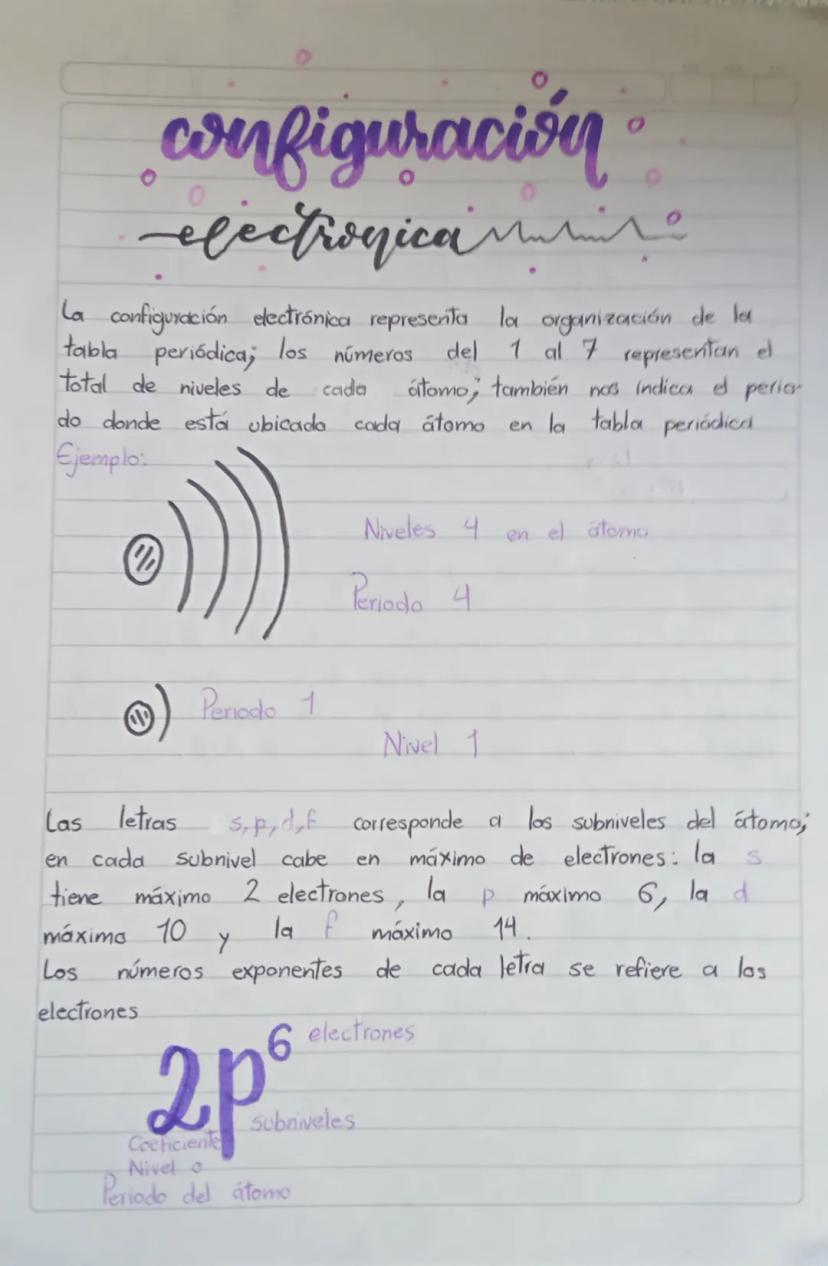 configuración
electronica
La configuración electrónica representa la organización de la
tabla periódica; los números del 1 al 7 representan el
total de niveles de cada átomo; también nos indica el perio
do donde está ubicado cada átomo en la tabla periódica
Ejemplo:
Niveles 4 en el átomo
Periodo 4
Periodo 1
Nivel 1
Las letras s,p,d,f corresponde a los subniveles del átomo;
en cada subnivel cabe en máximo de electrones: la s
tiene máximo 2 electrones, la p máximo 6, la d
máximo 10 y la f máximo 14.
Los números exponentes de cada letra se refiere a los
electrones
2p⁶ electrones
subniveles
Coeficiente
Nivel o
Periodo del átomo